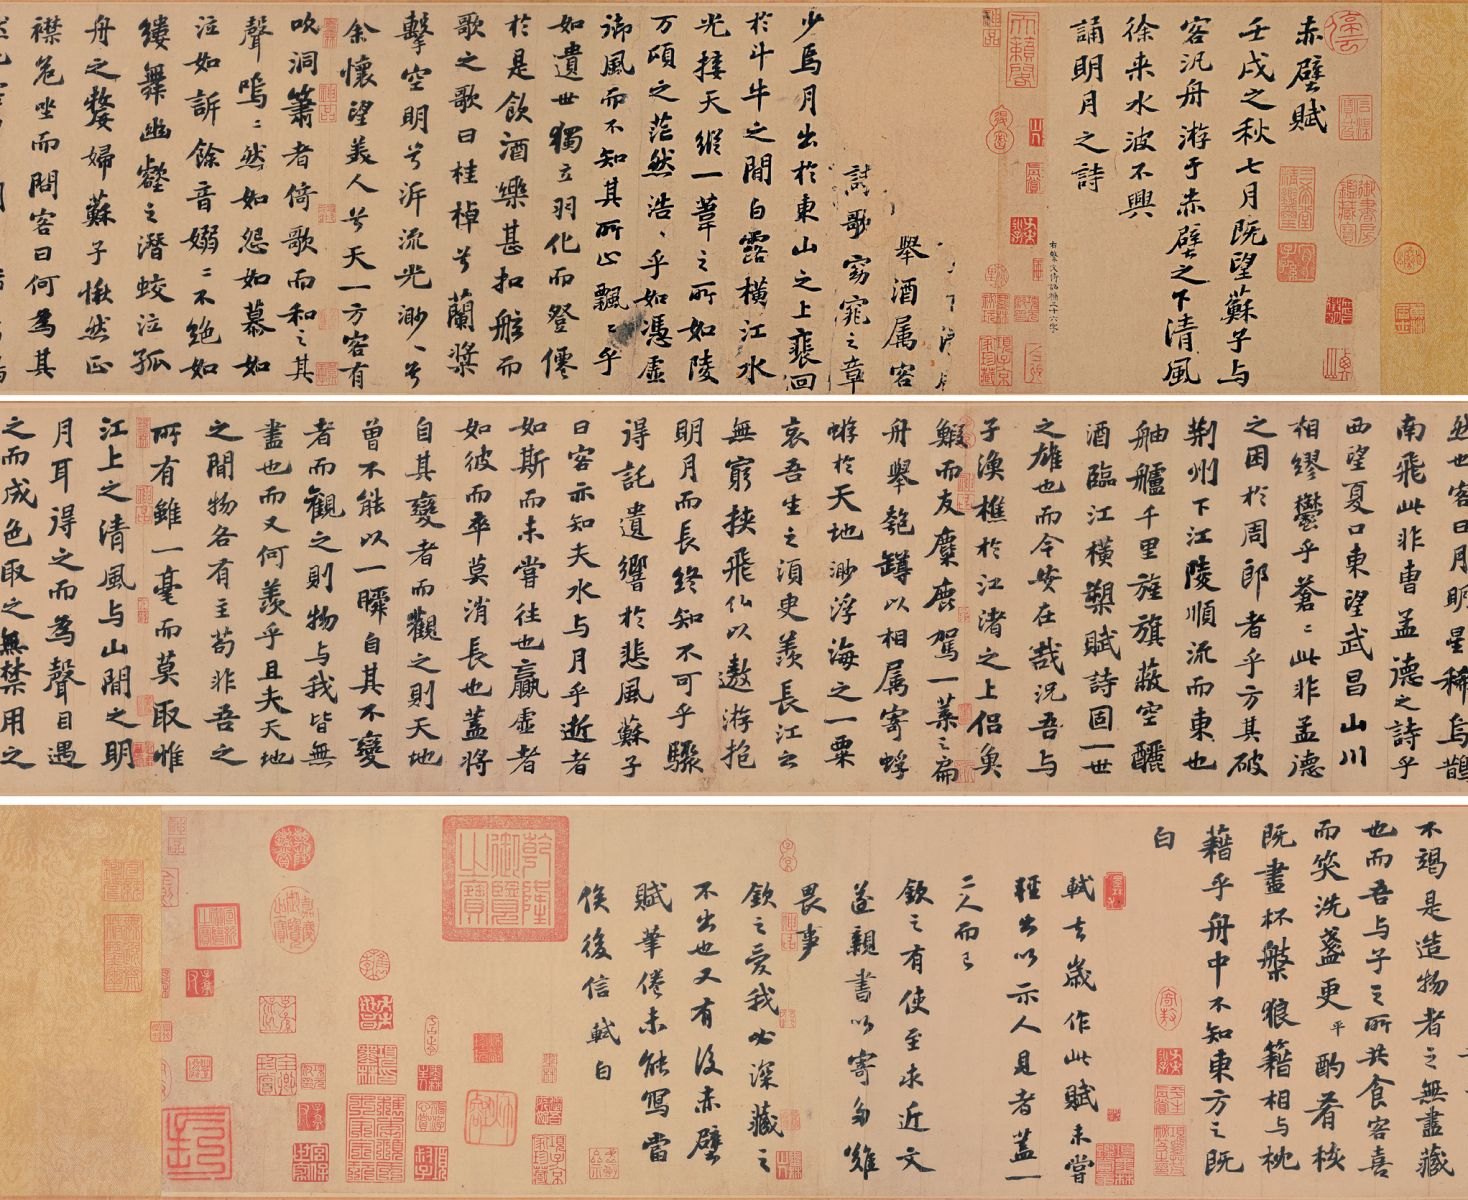 赤壁賦
壬戌之秋七月既望蘇子与
客汎舟游于赤壁之下清風
徐来水波不興
誦明月之詩
舉酒属客
歌窈窕之章
少焉月出於東山之上裴回
於斗牛之間白露横江水
光接天縱一葦之所如陵
万頃之茫然浩〻乎如憑虚
御風而不知其所止飄〻乎
如遺世獨立羽化而登僊
於是飲酒樂甚扣舷而
歌之歌曰桂棹兮蘭槳
擊空明兮泝流光渺〻兮
余懷望美人兮天一方客有
吹洞簫者倚歌而和之其
聲嗚〻然如怨如慕如
泣如訴餘音嫋〻不絶如
縷舞幽壑之潜蛟泣孤
舟之嫠婦蘇子愀然正
襟危坐而問客曰何為其
然也客曰月明星稀烏鵲
南飛此非曹孟德之詩乎
西望夏口東望武昌山川
相繆鬱乎蒼〻此非孟德
之困於周郎者乎方其破
荆州下江陵順流而東也
舳艫千里旌旗蔽空釃
酒臨江横槊賦詩固一世
之雄也而今安在哉况吾与
子漁樵於江渚之上侣魚
鰕而友麋鹿駕一葉之扁
舟舉匏罇以相属寄蜉
蝣於天地渺浮海之一粟
哀吾生之須臾羨長江之
無窮挾飛仙以遨游抱
明月而長終知不可乎驟
得託遺響於悲風蘇子
曰客亦知夫水与月乎逝者
如斯而未嘗往也贏虚者
如彼而卒莫消長也蓋将
自其變者而觀之則天地
曾不能以一瞬自其不變
者而觀之則物与我皆無
盡也而又何羨乎且夫天地
之間物各有主苟非吾之
所有雖一毫而莫取惟
江上之清風与山間之明
月耳得之而為聲目遇
之而成色取之無禁用之
不竭是造物者之無盡藏
也而吾与子之所共食客喜
而笑洗盞更酌肴核
既盡杯盤狼籍相与枕
藉乎舟中不知東方之既
白
軾去歳作此賦未嘗
輕出以示人見者蓋一
二人而已
欽之有使至求近文
遂親書以寄多難
畏事
欽之愛我必深藏之
不出也又有後赤壁
賦筆倦未能写當
俟後信軾白
乾隆御覽之寶